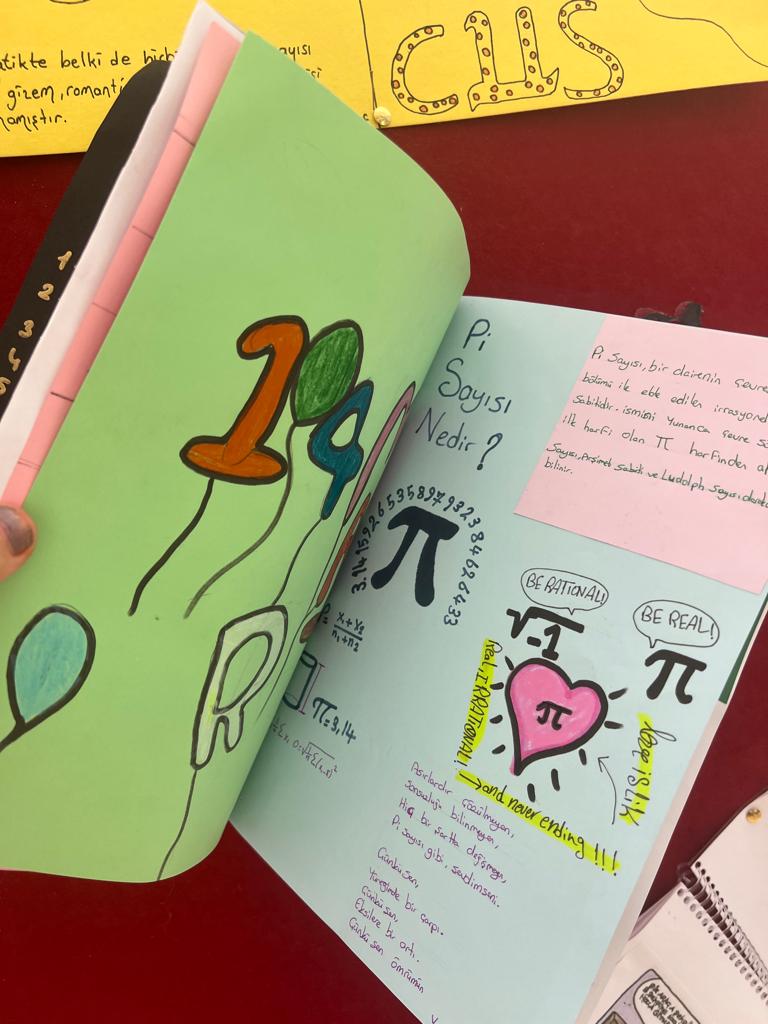 CUS
tikte belki de
gizem, romanti
amıştır.
1
2
3
4
5
1
9
R
Pi
Sayısı
Nedir?
Pi Sayısı, bir dairenin çevre
bölümü ile elde edilen irrasyone
sabitidir. ismini Yunanca çevre sö
ilk harfi olan π harfinden al
Sayısı, Arşimet Sabiti ve Ludolph Sayısı olarak
bilinir.
3.1415926535897932384626433
π
BE RATIONAL!
√-1
BE REAL!
π
x₁+x₂
n₁+n₂
π=3,14
Real, IRRATIONAL!
π
Love is lik
→and never ending!!!
Asırlardır çözülmeyen,
Sonsuzluğu bilinmeyen,
Hiç bir şartta değişmeyen,
Pi sayısı gibi, sevdim seni.
Çünkü sen,
Yüreğimde bir çarpı.
Çünkü sen,
Eksilere bir artı.
Çünkü sen ömrümün